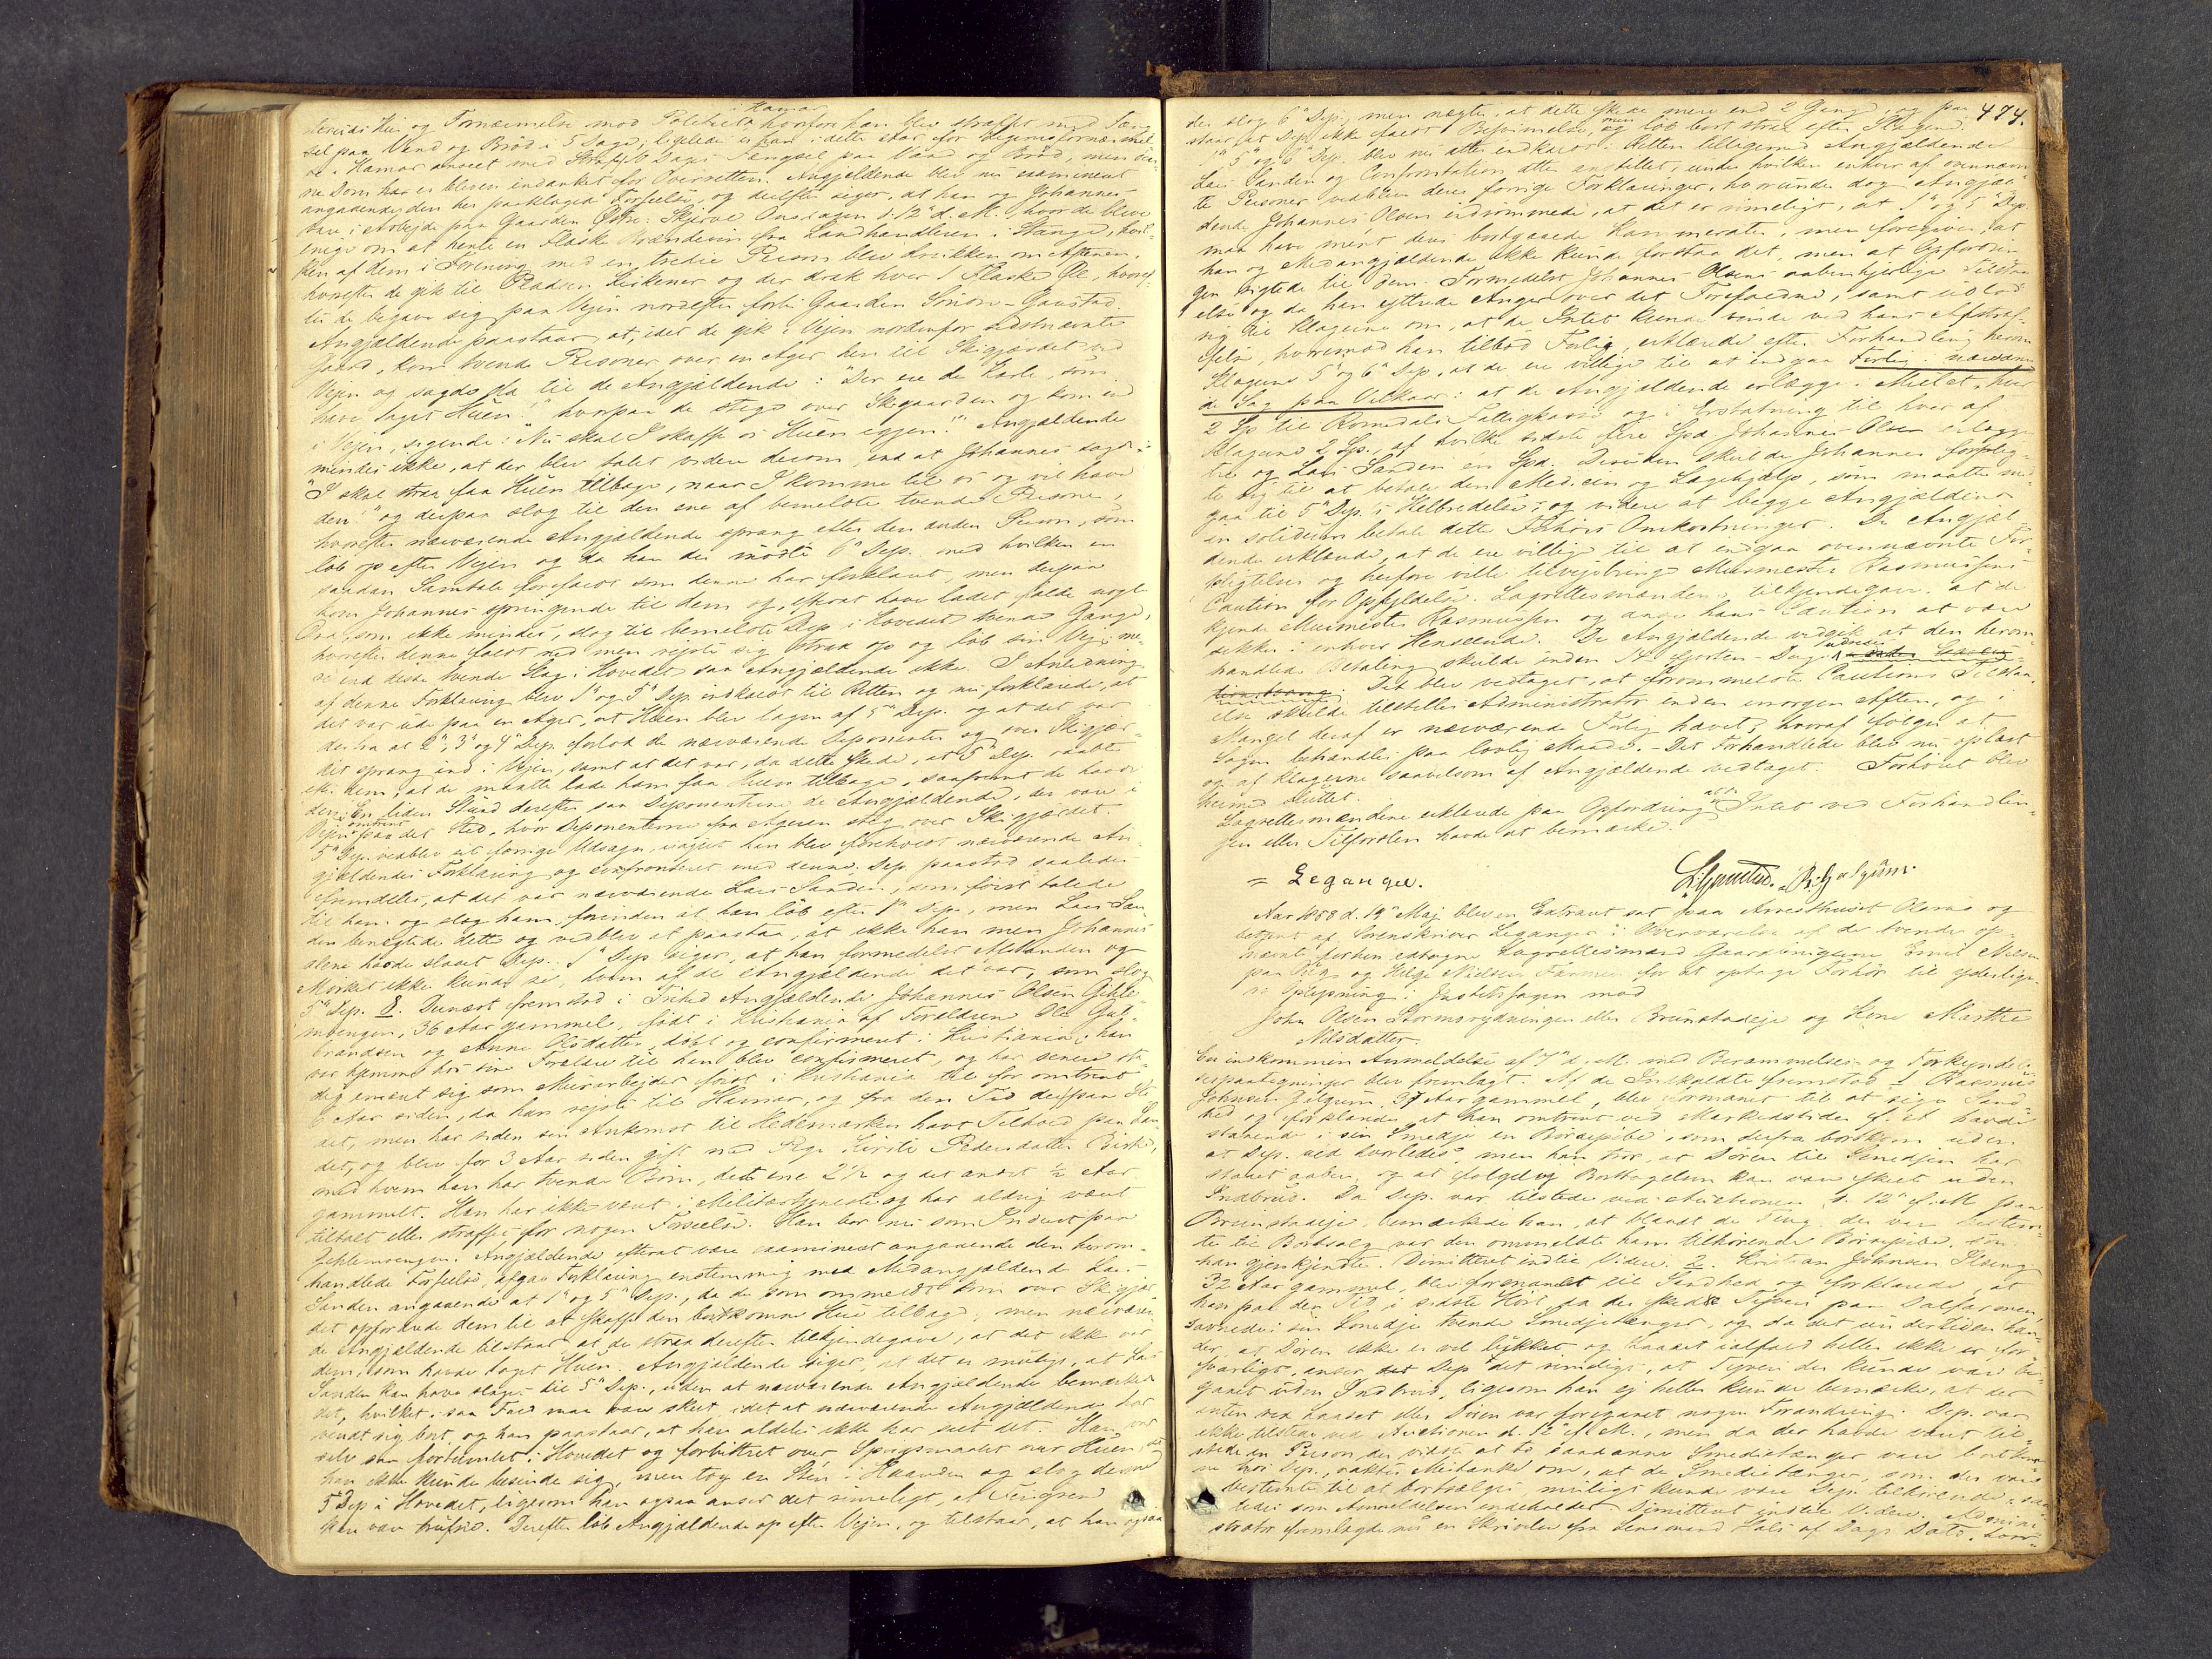 i Hamar
og Fornærmelse mod Politiet, hvorfor han blev straffet med Fæng-
sel paa Vand og Brød i 5 Dage, ligeledes er han i dette Aar for Legemsfornærmel-
se i Hamar anseet med Straf Dages Fængsel paa Vand og Brød, men den-
ne Dom har er bleven indanket for Overretten. Angjældende blev nu examineret
angaaende den her paaklagede Forseelse, og derefter siger, at han og Johannes
vare i Arbejde paa Gaarden Østre Skjerve Onsdagen d. 12te d. M. hvor de bleve
enige om at hente en Flaske Brændeviin fra Landhandleren i Stange, hvil-
ken af dem i Forening med en tredie Person blev drukken om Aftenen,
hvorefter de gik til Pladsen Kirkener og der drak hver 1 Flaske Øl, hvoref-
ter de begave sig paa Vejen nordefter forbi Gaarden Sniore-Gaustad.
Angjældende paastaar, at, idet de gik i Vejen nordenfor sidstnævnte
Gaard, kom tvende Personer over en Ager hen til Skigjærdet ved
Vejen og sagde fra til de Angjældende: "Der ere de Karle, som
have taget Huen", hvorpaa de stege over Skigaarden og kom ind
i Vejen, sigende: "Nu skal I skaffe os Huen igjen." Angjældende
mindes ikke, at der blev talet videre derom end at Johannes sagde:
"I skal straa faa Huen tilbage, naar I komme til os og vil have
den" og derpaa slog til den ene af bemeldte tvende Personer,
hvorefter nærværende Angjældende sprang efter den anden Person, som
løb op efter Vejen og da han der mødte 6te Dep. med hvilken en
saadan Samtale forefaldt som denne har forklaret, men derpaa
kom Johannes springende til dem og, efterat have ladet falde nogle
Ord, som ikke mindes, slog til bemeldte Dep. i Hovedet tvende Gange,
hvorefter denne faldt ned men rejste sig strax op og løb sin Vej; me-
re end disse tvende Slag i Hovedet saa Angjældende ikke. I Anledning
af denne Forklaring blev 1te og 5te Dep. indkaldt til Retten og nu forklarede, at
det var ude paa en Ager, at Huen blev tagen af 5te Dep. og at det var
derfra at 2te, 3te og 4te Dep. forlod de nærværende Deponenter og over Skigjær-
det sprang ind i Vejen, samt at det var, da dette skede, at 5te Dep. raabte
eft. dem, at de maatte lade ham faa Huen tilbage, saafremt de havde
den. En liden Stund derefter saa Deponenterne de Angjældende, der vare i
Vejen omtrent paa det Sted, hvor Deponenterne fra Ageren steg over Skigjærdet.
5te Dep. vedblev sit forrige Udsagn, uagtet han blev foreholdt nærværende An-
gjældendes Forklaring og confronteret med denne. Dep. paastod saaledes
fremdeles, at det var nærværende Lars Sanden, som først talede
til ham og slog ham, forinden at han løb efter 1te Dep., men Lars San-
den benegtede dette og vedblev at paastaa, at ikke han men Johannes
alene havde slaaet Dep. 1te Dep. siger, at han formedelst Afstanden og
Mørket ikke kunde se, hvem af de Angjældende det var, som slog
5te Dep. 8. Dernæst fremstod i Frihed Angjældende Johannes Olsen Gihle-
moengen, 36 Aar gammel, født i Kristiania af Forældrene Ole Gul-
brandsen og Anne Olsdatter, døbt og confirmeret i Kristiania; han
var hjemme hos sine Forældre til han blev confirmeret, og har senere sta-
dig ernæret sig som Murarbejder først i Kristiania til for omtrent
6 Aar siden, da han rejste til Hamar, og fra den Tid derpaa
det, men har siden sin Ankomst til Hedemarken havt Tilhold paa Lan-
det, og blev for 3 Aar siden gift med Pige Kirsti Pedersdatter
med hvem han har tvende Børn, det ene 2½ og det andet ½ Aar
gammelt. Han har ikke været i Militærtjeneste og har aldrig været
tiltalt eller straffet for nogen Forseelse. Han bor nu som Inderst paa
Gihlemoengen. Angjældende efterat være examineret angaaende den herom-
handlede Forseelse, afgav Forklaring enstemmig med Medangjældende Lars
Sanden angaaende at 1te og 5te Dep., da de som ommeldt kom over Skigjær-
det opfordrede dem til at skaffe den bortkomne Hue tilbage, men nærværen-
de Angjældende tilstaar, at de strax derefter tilkjendegave, at det ikke var
dem, som havde taget Huen. Angjældende siger, at det er muligt, at Lars
Sanden kan have slaget til 5te Dep., uden at nærværende Angjældende bemærkede
det, hvilket i saa Fald maa være skeet idet at nærværende Angjældende har
vendt sig bort, og han paastaar, at han aldeles ikke har seet det. Han var
selv saa fortumlet i Hovedet og forbittret over Spørgsmaalet over Huen, at
han ikke kunde besinde sig, men tog en Sten i Haanden og slog dermed
5te Dep i Hovedet, ligesom han ogsaa anser det rimeligt, at
kan være truffet. Derefter løb Angjældende op efter Vejen, og tilstaar, at han ogsaa
474.
der slog 6te Dep., men negter at dette skede mere end 2 Gange, og paa-
staar at Dep. ikke faldt i Besvimelse, men løb bort strax efter Slagene.
1te 5te og 6te Dep. blev nu atter indkaldt i Retten tilligemed Angjældende
Lars Sanden og Confrontation atter anstillet, under hvilken enhver af ovennævn-
te Personer vedblev deres forrige Forklaringer, hvorunder dog Angjæl-
dende Johannes Olsen indrømmede, at det er rimeligt, at 1te og 5te Dep.
maa have ment deres bortgaaede Kammerater, men foregiver, at
han og Medangjældende ikke kunde forstaa det, men at Opfordrin-
gen sigtede til dem. Formedelst Johannes Olsens aabenhjertige Tilstaa-
else og da han yttrede Anger over det Forefaldne, samt udlod
sig til Klagerne om, at de Intet kunde vinde ved hans Afstraf-
felse, hvorimod han tilbød Forlig, erklærede efter Forhandling herom
Klagerne 5te og 6te Dep., at de ere villige til at indgaa Forlig i nærværen-
de Sag paa Vilkaar: at de Angjældende erlægge i Mulct, hver
2 Sp til Romedals Fattigkasse og i Erstatning til hver af
Klagerne 2 Sp., af hvilke sidste fire Spd. Johannes Olsen erlægger
tre og Lars Sanden en Spd. Desuden skulde Johannes forplig-
te sig til at betale den Medicin og Lægehjælp, som maatte med-
gaa til 5te Dep.s Helbredelse; og videre at begge Angjældende
in solidum betale dette Forhørs Omkostninger. De Angjæl-
dende erklærede, at de ere villige til at indgaa ovennævnte For-
pligtelser og herfore ville tilvejebringe Murmester Rasmussens
Caution for Opfyldelse. Lagrettesmændene tilkjendegave at de
kjende Murmester Rasmussen og anse hans Caution at være
sikker i enhver Henseende. De Angjældende vedgik at den herom-
handlede Betaling skulde inden 14 fjorten Dage
Det blev vedtaget, at forommeldte Cautions Tilstaa-
else skulde tilstilles Administrator inden imorgen Aften, og
i Mangel deraf er nærværende Forlig hævet, hvoraf følger at
Sagen behandles paa lovlig Maade. – Det Forhandlede blev nu oplæst
og af Klagerne saavelsom af Angjældende vedtaget. Forhøret blev
hermed sluttet.
Lagrettesmændene erklærede paa Opfordring at de Intet ved Forhandlin-
gen eller Tilførslen havde at bemærke.
= Leganger.
Aar 1858 d. 19de Maj blev en Extraret sat paa Arresthuset og
betjent af Sorenskriver Leganger i Overværelse af de tvende op-
nævnte forhen edtagne Lagrettesmænd Gaardbrugerne Emil Nilsen
paa og Helge Nielsen for at optage Forhør til yderlige-
re Oplysning i Justitssagen mod
John Olsen Stormorydningen eller Brunstadeje og Kone Marthe
Nilsdatter.
En indkommen Anmeldelse af 7de d. M. med Berammelses- og Forkyndel-
sespaategninger blev fremlagt. Af de Indkaldte fremstod 1 Rasmus
Johnsen Gilgum, 37 Aar gammel, blev formanet til at sige Sand-
hed og forklarede at han omtrent ved Markedstiden f. A. havde
staaende i sin Smedje en Børsepibe, som derfra bortkom uden
at Dep. ved hvorledes, men han tror, at Døren til Smedjen har
staaet aaben, og at følgelig Borttagelsen kan være skeet uden
Indbrud. Da Dep. var tilstede ved Auctionen d. 12te f. M. paa
Brunstadeje, bemærkede han, at blandt de Ting, der var bestem-
te til Bortsalg var den ommeldte ham tilhørende Børsepibe, som
han gjenkjendte. Dimitteret indtil Videre. 2. Kristian Johnsen
32 Aar gammel, blev formanet til Sandhed og forklarede, at
han paa den Tid i sidste Høst, da der skede Tyveri paa Dalfarmen,
savnede i sin Smedje tvende Smedjetænger, og da det undertiden hæn-
der, at Døren ikke er vel lukket og Laaset ialfald heller ikke er for-
svarligt, anser Dep det muligt, at Tyveri der kunde være be-
gaaet uden Indbrud, ligesom han ej heller kunde bemærke, at der
enten ved Laaset eller Døren var foregaaet nogen Forandring. Dep. var
ikke tilstede ved Auctionen d. 12 f. M., men da der havde været til-
stede en Person, der vidste at to saadanne Smedietænger vare bortkom-
ne hos Dep., vaktes Mistanke om, at de Smedietænger, som der vare
bestemte til at bortsælges, muligt kunde være Dep. tilhørende, saa-
ledes som Anmeldelsen indeholder. Dimitteret indtil Videre. Admini-
strator fremlagde nu en Skrivelse fra Lensmand af Dags Dato, hvor-